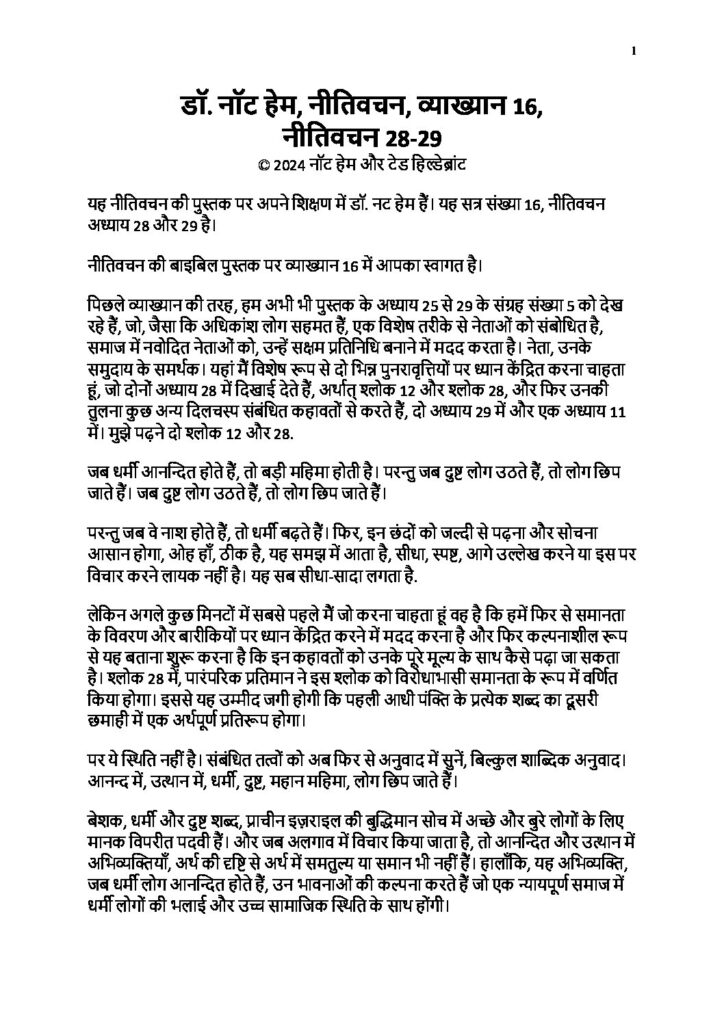 1
डॉ. नॉट हेम, नीतिवचन, व्याख्यान 16,
नीतिवचन 28-29
© 2024 नॉट हेम और टेड हिल्डेब्रांट
यह नीतिवचन की पुस्तक पर अपने शिक्षण में डॉ. नट हेम हैं। यह सत्र संख्या 16, नीतिवचन
अध्याय 28 और 29 है।
नीतिवचन की बाइबिल पुस्तक पर व्याख्यान 16 में आपका स्वागत है।
पिछले व्याख्यान की तरह, हम अभी भी पुस्तक के अध्याय 25 से 29 के संग्रह संख्या 5 को देख
रहे हैं, जो, जैसा कि अधिकांश लोग सहमत हैं, एक विशेष तरीके से नेताओं को संबोधित है,
समाज में नवोदित नेताओं को, उन्हें सक्षम प्रतिनिधि बनाने में मदद करता है। नेता, उनके
समुदाय के समर्थक। यहां मैं विशेष रूप से दो भिन्न पुनरावृत्तियों पर ध्यान केंद्रित करना चाहता
हूं, जो दोनों अध्याय 28 में दिखाई देते हैं, अर्थात् श्लोक 12 और श्लोक 28, और फिर उनकी
तुलना कुछ अन्य दिलचस्प संबंधित कहावतों से करते हैं, दो अध्याय 29 में और एक अध्याय 11
में। मुझे पढ़ने दो श्लोक 12 और 28.
जब धर्मी आनन्दित होते हैं, तो बड़ी महिमा होती है। परन्तु जब दुष्ट लोग उठते हैं, तो लोग छिप
जाते हैं। जब दुष्ट लोग उठते हैं, तो लोग छिप जाते हैं।
परन्तु जब वे नाश होते हैं, तो धर्मी बढ़ते हैं। फिर, इन छंदों को जल्दी से पढ़ना और सोचना
आसान होगा, ओह हाँ, ठीक है, यह समझ में आता है, सीधा, स्पष्ट, आगे उल्लेख करने या इस पर
विचार करने लायक नहीं है। यह सब सीधा-सादा लगता है.
लेकिन अगले कुछ मिनटों में सबसे पहले मैं जो करना चाहता हूं वह है कि हमें फिर से समानता
के विवरण और बारीकियों पर ध्यान केंद्रित करने में मदद करना है और फिर कल्पनाशील रूप
से यह बताना शुरू करना है कि इन कहावतों को उनके पूरे मूल्य के साथ कैसे पढ़ा जा सकता
है। श्लोक 28 में, पारंपरिक प्रतिमान ने इस श्लोक को विरोधाभासी समानता के रूप में वर्णित
किया होगा। इससे यह उम्मीद जगी होगी कि पहली आधी पंक्ति के प्रत्येक शब्द का दूसरी
छमाही में एक अर्थपूर्ण प्रतिरूप होगा।
पर ये स्थिति नहीं है। संबंधित तत्वों को अब फिर से अनुवाद में सुनें, बिल्कुल शाब्दिक अनुवाद।
आनन्द में, उत्थान में, धर्मी, दुष्ट, महान महिमा, लोग छिप जाते हैं।
बेशक, धर्मी और दुष्ट शब्द, प्राचीन इज़राइल की बुद्धिमान सोच में अच्छे और बुरे लोगों के लिए
मानक विपरीत पदवी हैं। और जब अलगाव में विचार किया जाता है, तो आनन्दित और उत्थान में
अभिव्यक्तियाँ, अर्थ की दृष्टि से अर्थ में समतुल्य या समान भी नहीं हैं। हालाँकि, यह अभिव्यक्ति,
जब धर्मी लोग आनन्दित होते हैं, उन भावनाओं की कल्पना करते हैं जो एक न्यायपूर्ण समाज में
धर्मी लोगों की भलाई और उच्च सामाजिक स्थिति के साथ होंगी।